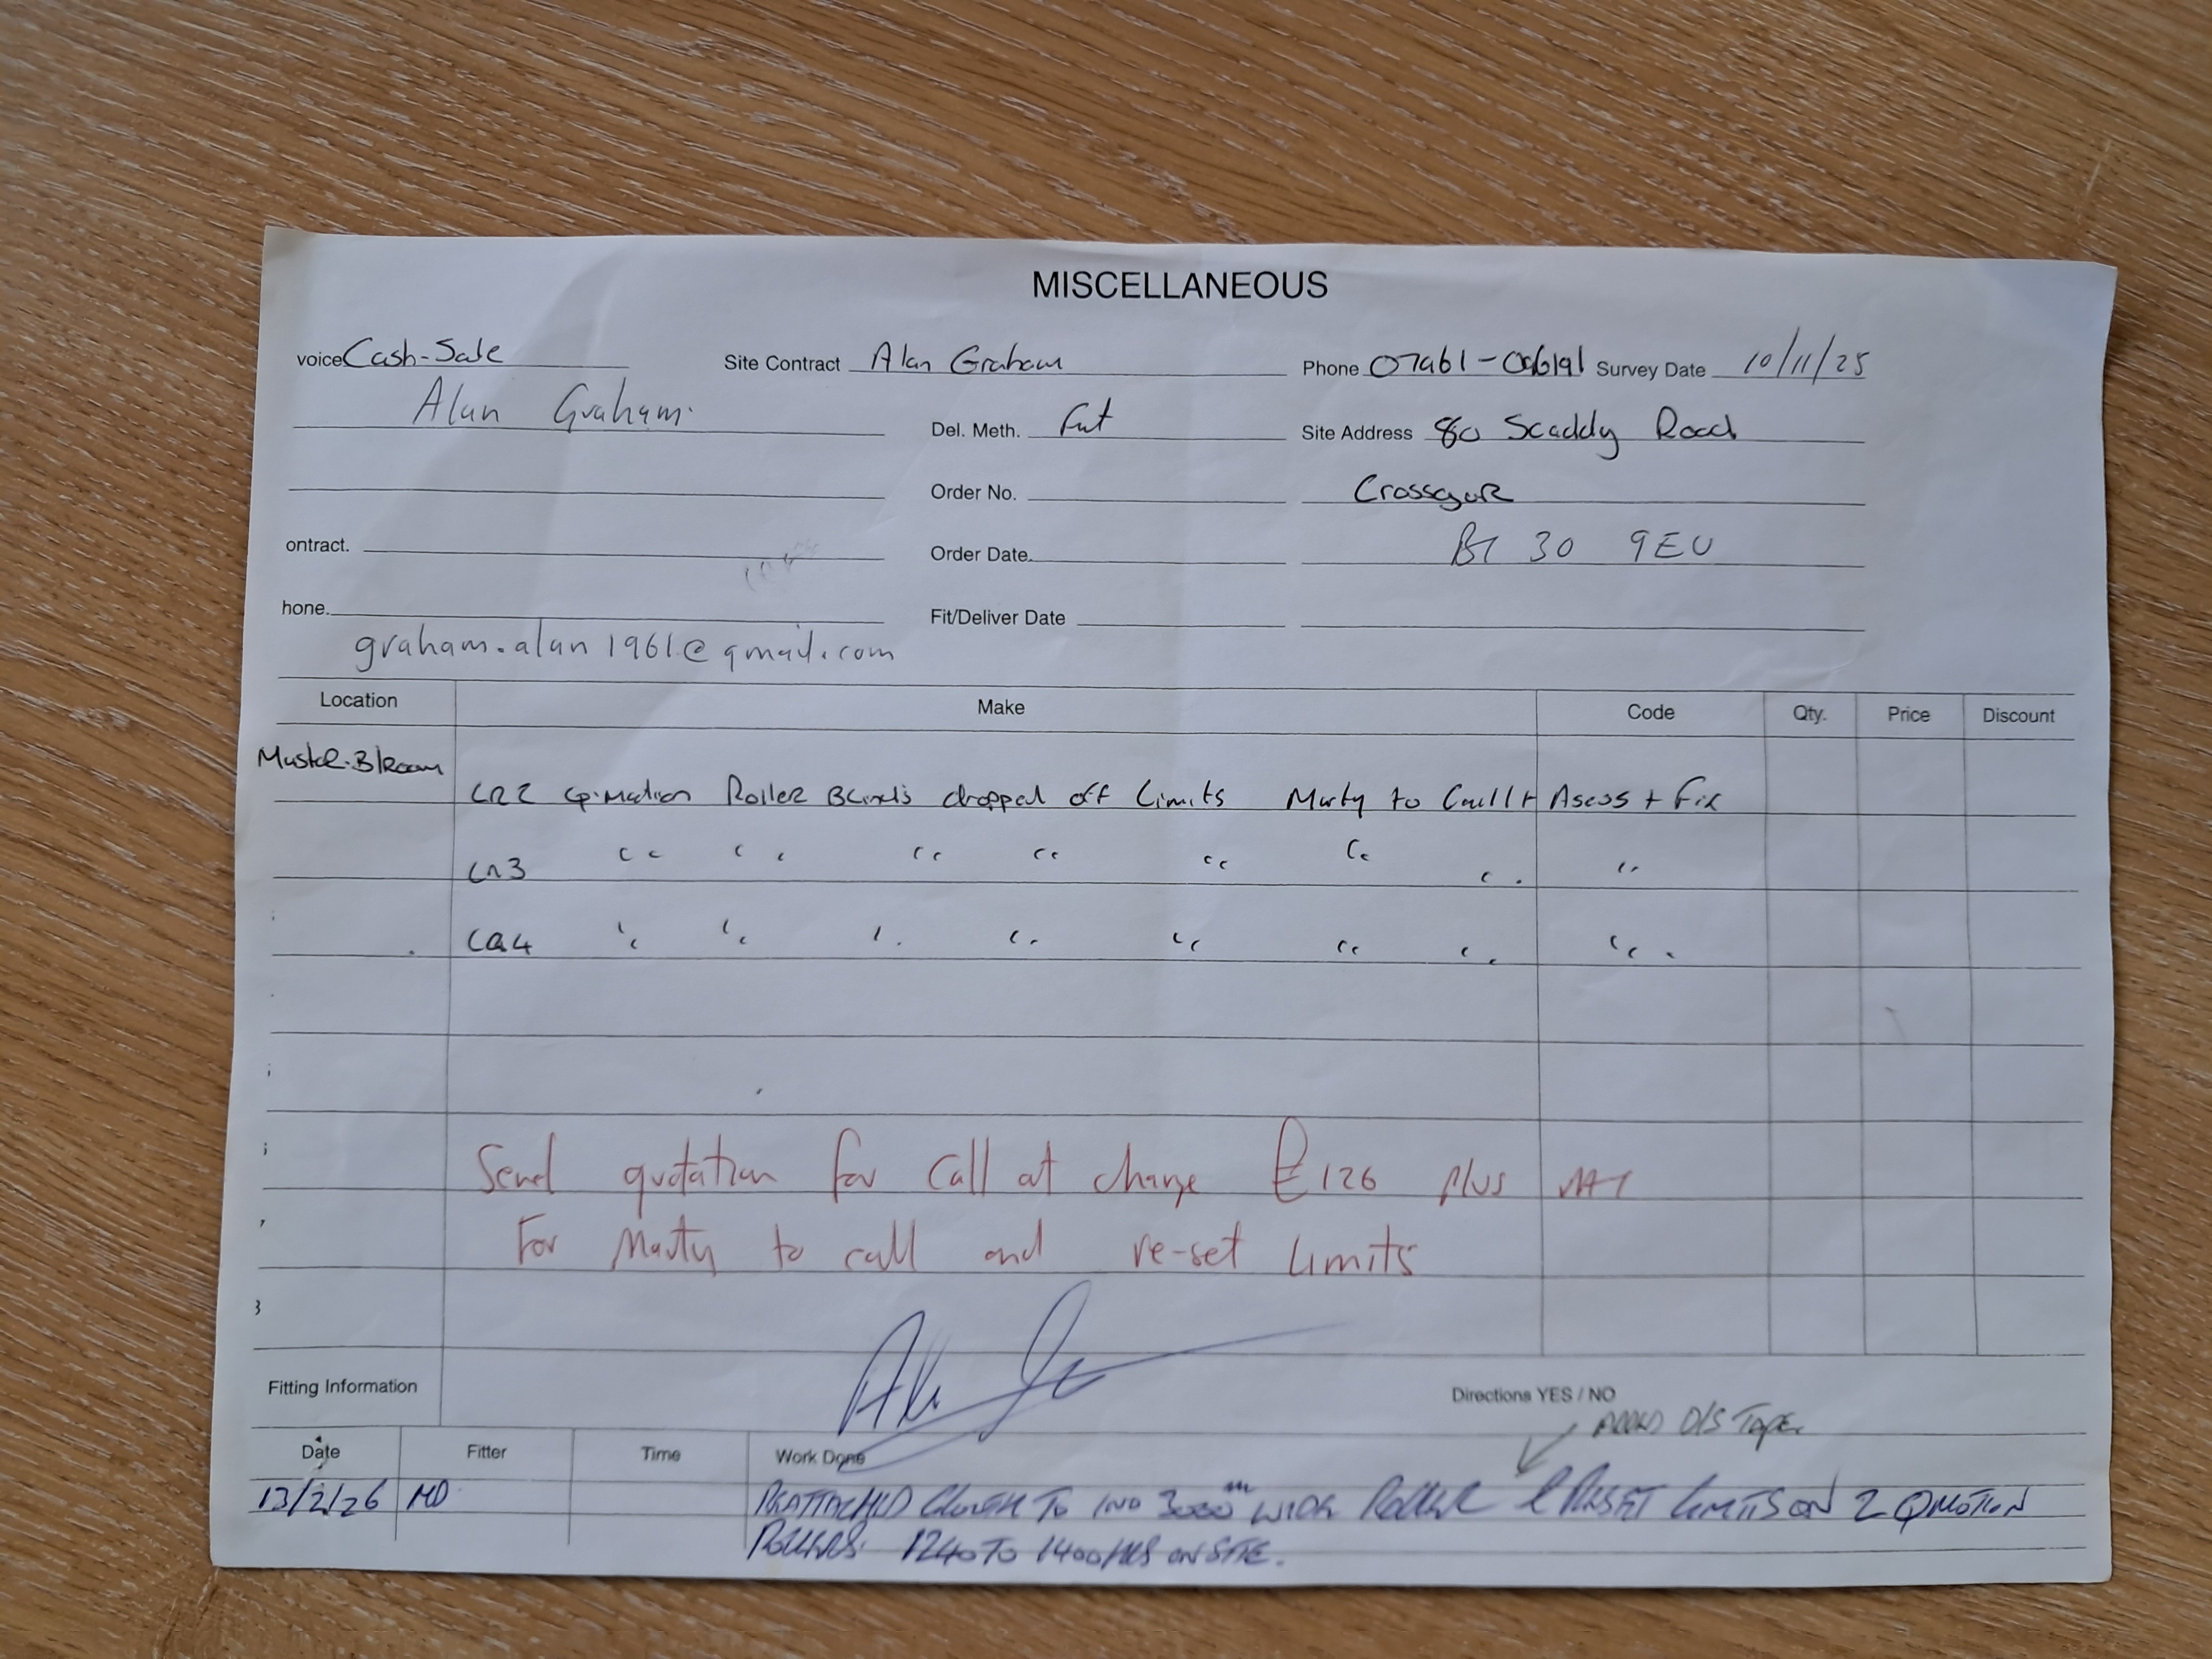 MISCELLANEOUS
voice Cash-Sale
Site Contract Alan Graham
Phone 07961-096191
Survey Date 10/11/25
Alan Graham.
Del. Meth. Fit
Site Address 80 Scaddy Road
Order No.
Crossgar
ontract.
Order Date.
BT 30 9EU
hone.
Fit/Deliver Date
graham.alan1961@gmail.com
Location Make Code Qty. Price Discount
Master B/Room
LR2 Q.Motion Roller Blinds dropped off Limits Marty to Call + Asess + Fix
LR3 " " " " " " " "
LR4 " " " " " " " "
Send quotation for call at charge £126 plus VAT
For Marty to call and re-set limits
Fitting Information
Directions YES / NO
D/S TAPE.
Date Fitter Time Work Done
13/2/26 MD REATTACHED CLOTH TO 1NO 3000mm WIDE ROLLER & RESET LIMITS ON 2 QMOTION
ROLLERS. 1240 TO 1400HRS ON SITE.